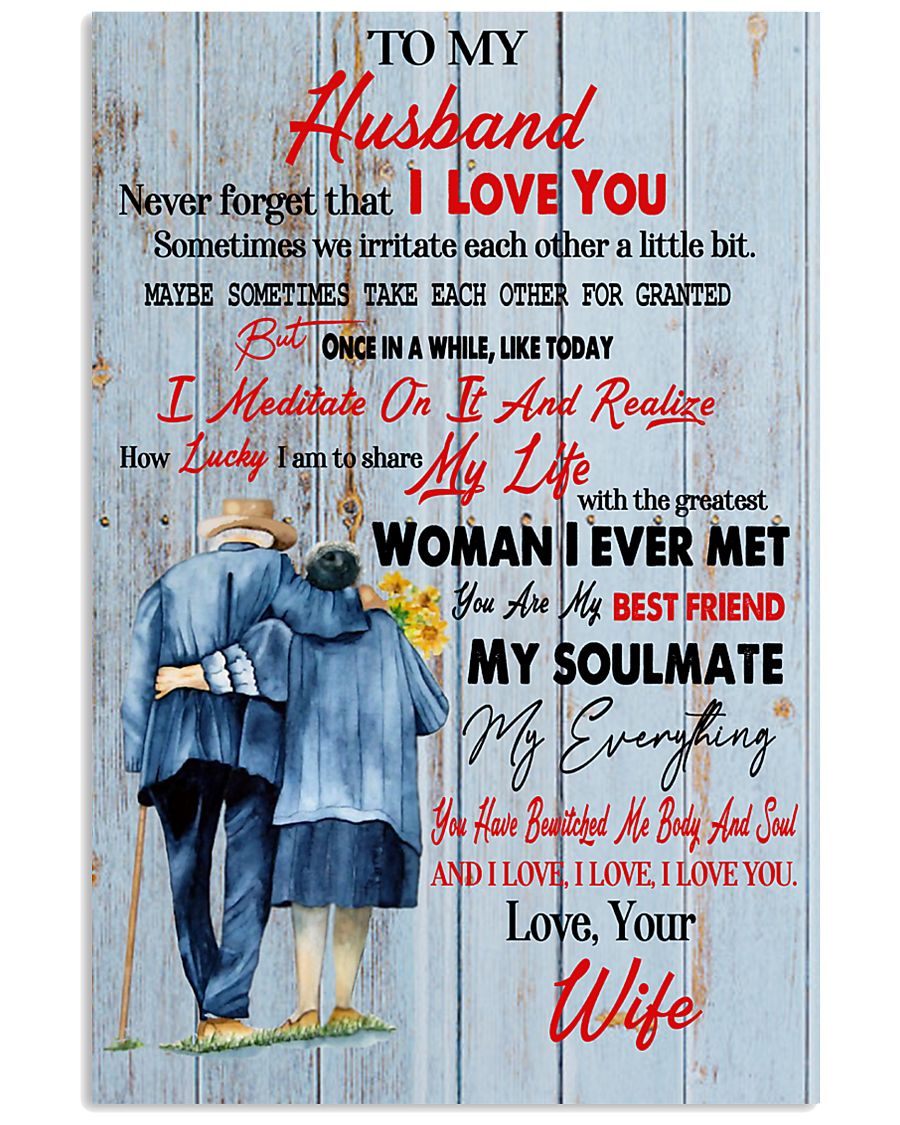 TO MY
Husband
Never forget that I LOVE YOU
Sometimes we irritate each other a little bit.
MAYBE SOMETIMES TAKE EACH OTHER FOR GRANTED
But ONCE IN A WHILE, LIKE TODAY
I Meditate On It And Realize
How Lucky I am to share My Life
with the greatest
WOMAN I EVER MET
You Are My BEST FRIEND
MY SOULMATE
My Everything
You Have Bewitched Me Body And Soul
AND I LOVE, I LOVE, I LOVE YOU.
Love, Your
Wife